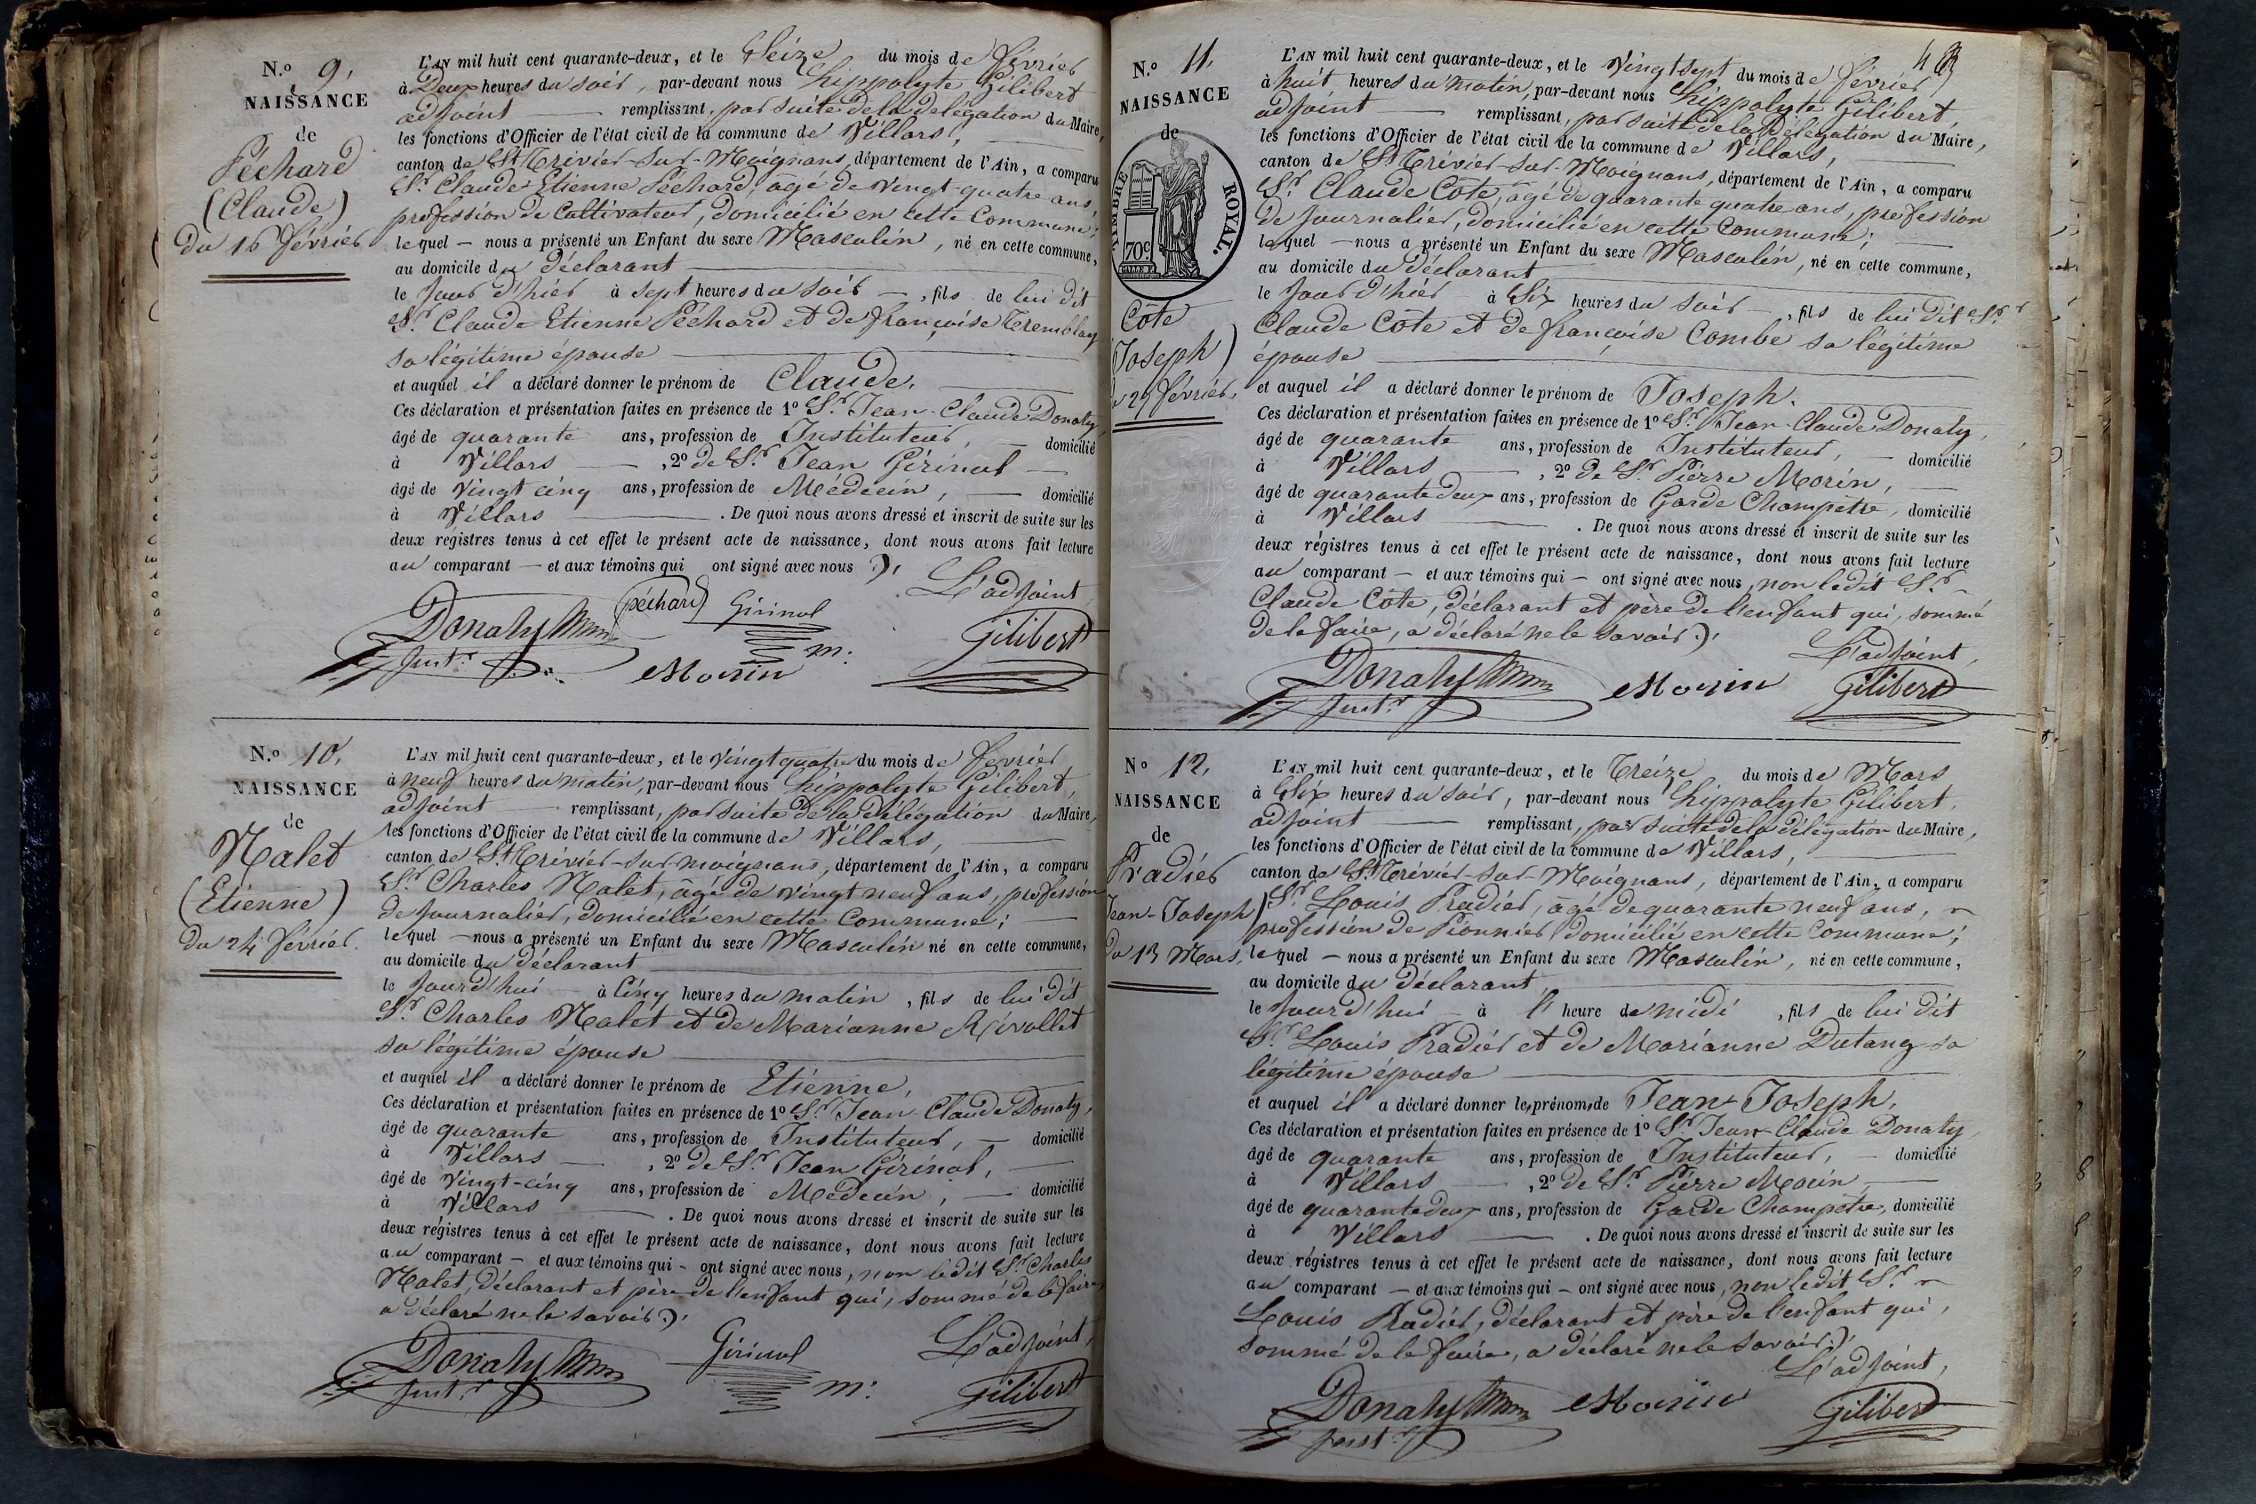 N.º 9.
NAISSANCE
de
Péchard
(Claude)
du 16 février
L'AN mil huit cent quarante-deux, et le Seize du mois de février
à Deux heures du soir, par-devant nous hippolyte Gilibert
adjoint remplissant, par suite de la délégation du Maire,
les fonctions d'Officier de l'état civil de la commune de Villars,
canton de St Trivier-sur-Moignans, département de l'Ain, a comparu
Sr. Claude Etienne Péchard, âgé de vingt-quatre ans,
profession de Cultivateur, domicilié en cette Commune;
lequel — nous a présenté un Enfant du sexe Masculin, né en cette commune,
au domicile du déclarant
le jour d'hier à sept heures du soir —, fils de lui dit
Sr. Claude Etienne Péchard et de françoise Tremblay
sa légitime épouse
et auquel il a déclaré donner le prénom de Claude.
Ces déclaration et présentation faites en présence de 1º Sr. Jean-Claude Donaty,
âgé de quarante ans, profession de Instituteur, — domicilié
à Villars —, 2º de Sr. Jean Girinal —
âgé de vingt cinq ans, profession de Médecin, — domicilié
à Villars — . De quoi nous avons dressé et inscrit de suite sur les
deux régistres tenus à cet effet le présent acte de naissance, dont nous avons fait lecture
au comparant — et aux témoins qui ont signé avec nous ).
L'adjoint,
Donaty
péchard
Girinal
Gilibert
Inst.r
m:
Morin
N.º 10.
NAISSANCE
de
Nalet
(Etienne)
du 24 février.
L'AN mil huit cent quarante-deux, et le vingt quatre du mois de février
à neuf heures du matin, par-devant nous hippolyte Gilibert,
adjoint remplissant, par suite de la délégation du Maire,
les fonctions d'Officier de l'état civil de la commune de Villars,
canton de St Trivier-sur-moignans, département de l'Ain, a comparu
Sr. Charles Nalet, âgé de vingt neuf ans, profession
de Journalier, domicilié en cette Commune;
lequel — nous a présenté un Enfant du sexe Masculin né en cette commune,
au domicile du déclarant
le jourd'hui à Cinq heures du matin, fils de lui dit
Sr. Charles Nalet et de Marianne Rivollet
sa légitime épouse
et auquel il a déclaré donner le prénom de Etienne,
Ces déclaration et présentation faites en présence de 1º Sr. Jean Claude Donaty,
âgé de quarante ans, profession de Instituteur, — domicilié
à Villars —, 2º de Sr. Jean Girinal, —
âgé de vingt-cinq ans, profession de Médecin, — domicilié
à Villars — . De quoi nous avons dressé et inscrit de suite sur les
deux régistres tenus à cet effet le présent acte de naissance, dont nous avons fait lecture
au comparant — et aux témoins qui — ont signé avec nous, non ledit Sr. Charles
Nalet, déclarant et père de l'enfant qui, sommé de le faire,
a déclaré ne le savoir ).
L'adjoint,
Donaty
Girinal
Gilibert
Inst.r
m:
43
N.º 11.
NAISSANCE
de
TIMBRE ROYAL.
70c
Côte
(Joseph)
27 février.
L'AN mil huit cent quarante-deux, et le vingt sept du mois de février
à huit heures du matin, par-devant nous hippolyte Gilibert,
adjoint remplissant, par suite de la délégation du Maire,
les fonctions d'Officier de l'état civil de la commune de Villars,
canton de St Trivier-sur-Moignans, département de l'Ain, a comparu
Sr. Claude Côte, âgé de quarante quatre ans, profession
de Journalier, domicilié en cette Commune;
lequel — nous a présenté un Enfant du sexe Masculin, né en cette commune,
au domicile du déclarant
le jour d'hier à Six heures du soir —, fils de lui dit Sr.
Claude Côte et de françoise Combe sa légitime
épouse
et auquel il a déclaré donner le prénom de Joseph.
Ces déclaration et présentation faites en présence de 1º Sr. Jean-Claude Donaty,
âgé de quarante ans, profession de Instituteur, — domicilié
à Villars —, 2º de Sr. Pierre Morin, —
âgé de quarante deux ans, profession de Garde Champêtre, domicilié
à Villars — . De quoi nous avons dressé et inscrit de suite sur les
deux régistres tenus à cet effet le présent acte de naissance, dont nous avons fait lecture
au comparant — et aux témoins qui — ont signé avec nous, non ledit Sr.
Claude Côte, déclarant et père de l'enfant qui, sommé
de le faire, a déclaré ne le savoir ).
L'adjoint,
Donaty
Morin
Gilibert
Inst.r
Nº 12.
NAISSANCE
de
Pradier
Jean-Joseph)
du 13 Mars.
L'AN mil huit cent quarante-deux, et le Treize du mois de Mars
à Six heures du soir, par-devant nous hippolyte Gilibert,
adjoint remplissant, par suite de la délégation du Maire,
les fonctions d'Officier de l'état civil de la commune de Villars,
canton de St Trivier-sur-Moignans, département de l'Ain, a comparu
Sr. Louis Pradier, âgé de quarante neuf ans,
profession de Pionnier, domicilié en cette Commune;
lequel — nous a présenté un Enfant du sexe Masculin, né en cette commune,
au domicile du déclarant
le jourd'hui — à l' heure de midi, fils de lui dit
Sr. Louis Pradier et de Marianne Dutang sa
légitime épouse
et auquel il a déclaré donner le prénom de Jean Joseph.
Ces déclaration et présentation faites en présence de 1º Sr. Jean Claude Donaty,
âgé de quarante ans, profession de Instituteur, — domicilié
à Villars —, 2º de Sr. Pierre Morin —
âgé de quarante deux ans, profession de Garde Champêtre, domicilié
à Villars — . De quoi nous avons dressé et inscrit de suite sur les
deux régistres tenus à cet effet le présent acte de naissance, dont nous avons fait lecture
au comparant — et aux témoins qui — ont signé avec nous, non ledit Sr.
Louis Pradier, déclarant et père de l'enfant qui,
sommé de le faire, a déclaré ne le savoir ).
L'adjoint,
Donaty
Morin
Gilibert
Inst.r